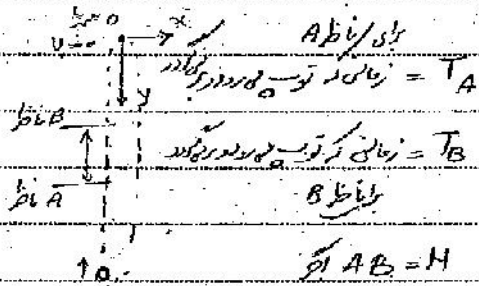 مبدا o x
v=0
برای ناظر A
زمانی که توپ می‌رود و برمی‌گردد = T_A
y
ناظر B
زمانی که توپ می‌رود و برمی‌گردد = T_B
ناظر A
برای ناظر B
اگر AB = H